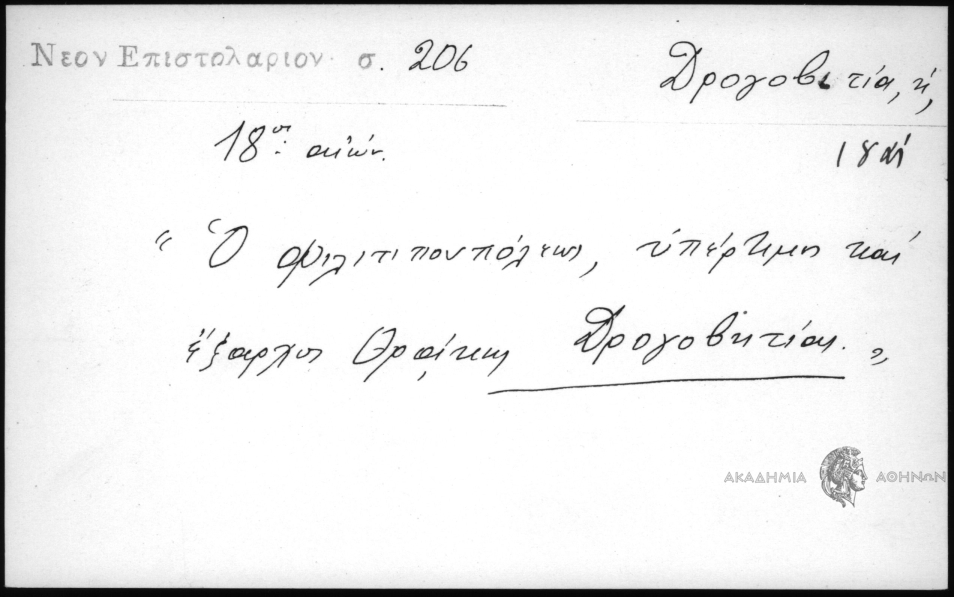 Νεον Επιστολαριον σ. 206
Δρογοβιτία, ἡ,
18ος αἰών.
18 αἰ
"Ὁ Φιλιππουπόλεως, ὑπέρτιμος καὶ
ἔξαρχος Θρᾴκης Δρογοβητίας."
ΑΚΑΔΗΜΙΑ ΑΘΗΝΩΝ